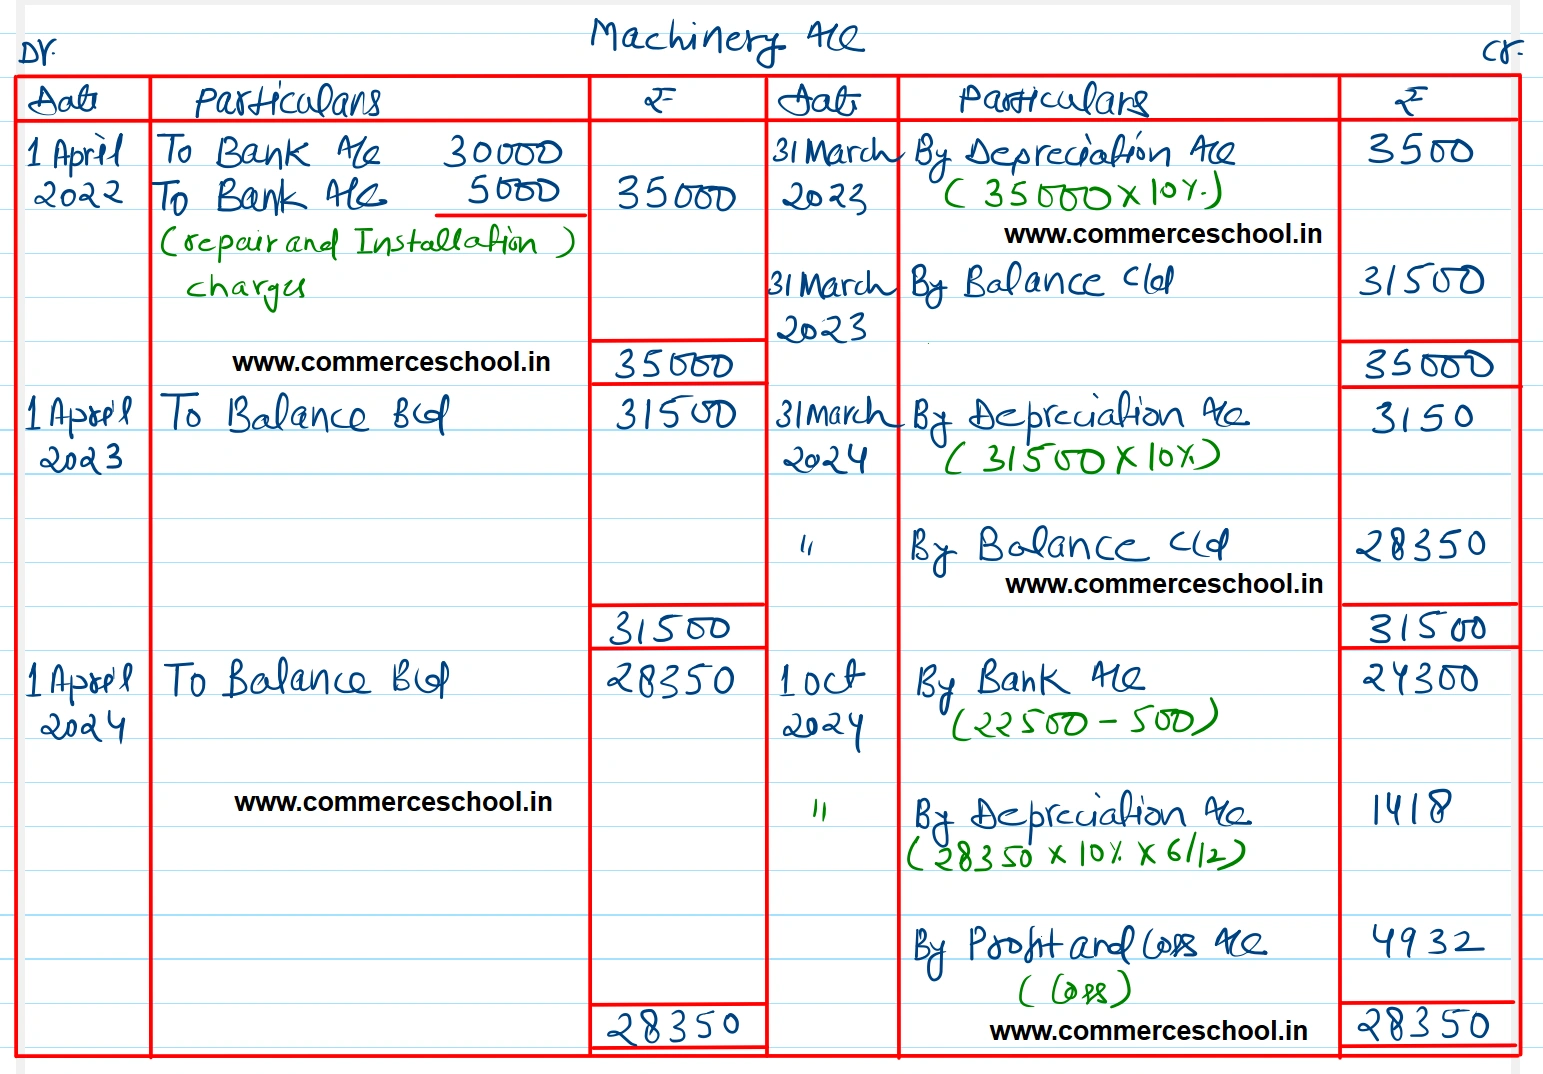 Machinery A/c
Dr. Cr.
Date Particulars ₹ Date Particulars ₹
1 April To Bank A/c 30000 31 March By Depreciation A/c 3500
2022 To Bank A/c 5000 35000 2023 (35000 x 10%.)
(repair and Installation) www.commerceschool.in
charges 31 March By Balance C/d 31500
2023
www.commerceschool.in 35000 35000
1 April To Balance B/d 31500 31 March By Depreciation A/c 3150
2023 2024 (31500 x 10%)
" By Balance C/d 28350
www.commerceschool.in
31500 31500
1 April To Balance B/d 28350 1 Oct By Bank A/c 24300
2024 2024 (22500 - 500)
www.commerceschool.in " By Depreciation A/c 1418
(28350 x 10% x 6/12)
By Profit and Loss A/c 4932
(Loss)
28350 www.commerceschool.in 28350